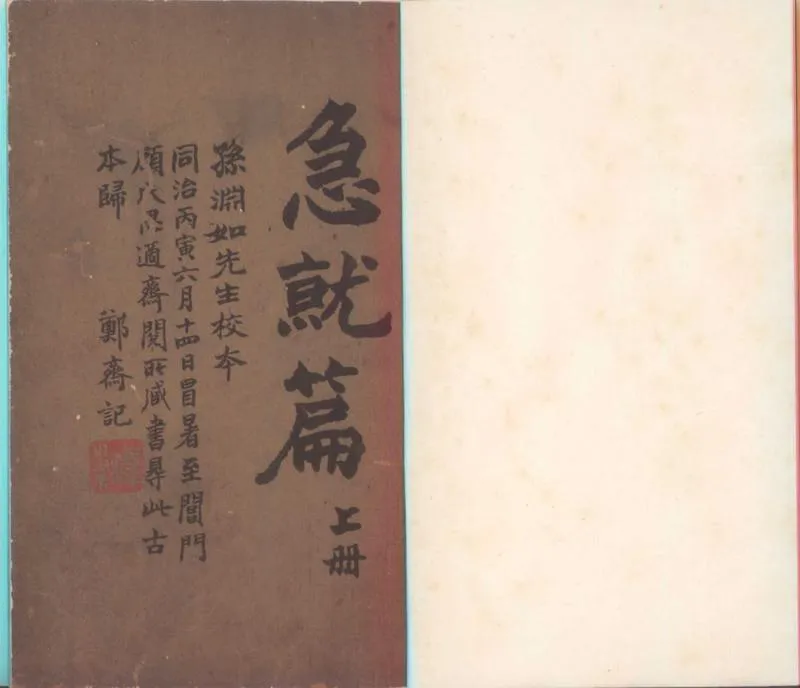 急就篇
上册
孫淵如先生校本
同治丙寅六月十四日冒暑至閶門
顧過齋閱所藏書尋此古
本歸
鄭齋記